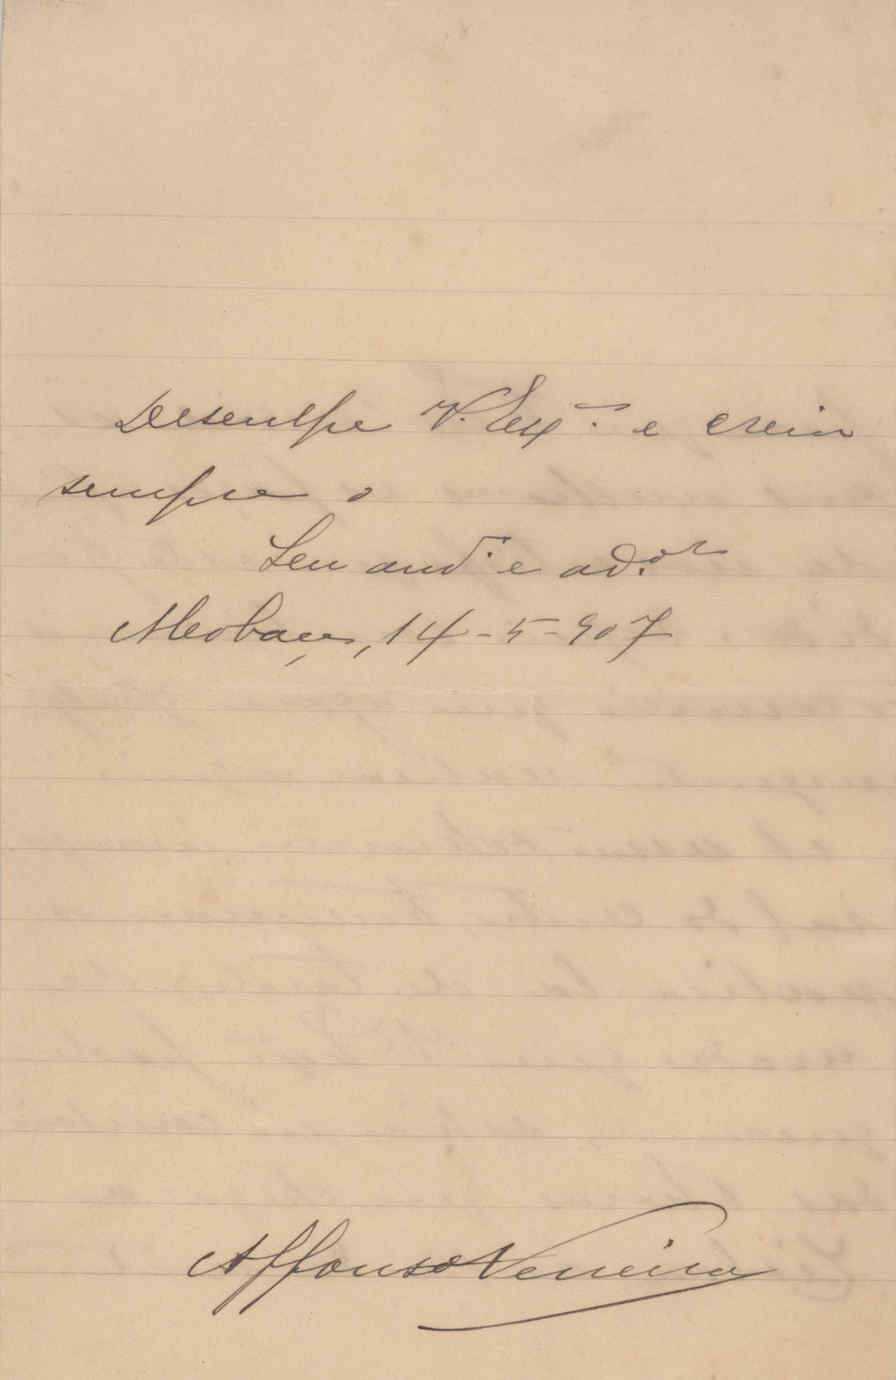 Desculpe V. Ex.ª e creia
sempre o
Seu am.º e ad.or
Alcobaça, 14-5-907
Affonso Ferreira